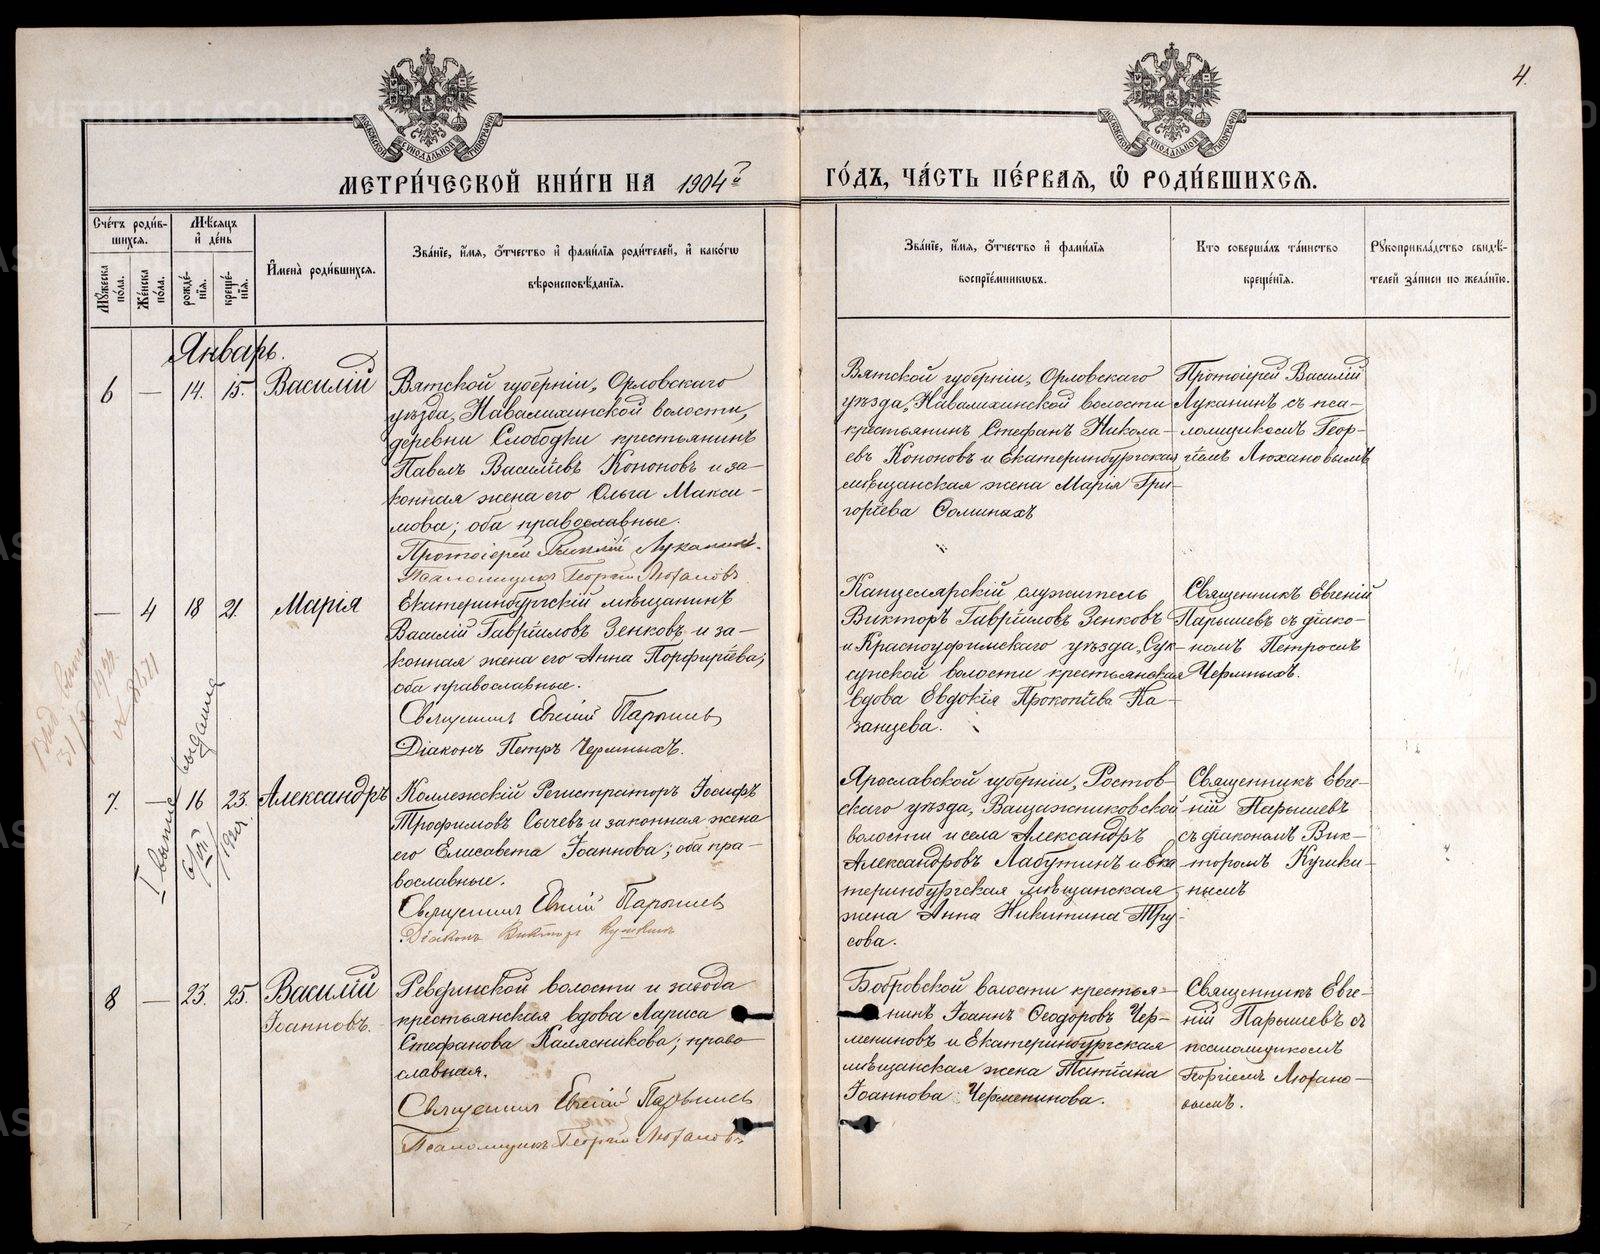 4.
МЕТРИ́ЧЕСКОЙ КНИ́ГИ НА 1904й
ГО́ДЪ, ЧА́СТЬ ПЕ́РВАЯ, Ѡ РОДИ́ВШИХСЯ.
Сче́тъ роди́в-
шихся.
Мꙋ́жеска по́ла.
Же́нска по́ла.
Мѣ́сяцъ
и де́нь
рожде́-
нїя.
креще́-
нїя.
Имена̀ роди́вшихся.
Зва́нїе, и́мя, о́тчество и фами́лїя роди́телей, и како́гѡ
вѣроисповѣ́данїя.
Зва́нїе, и́мя, о́тчество и фами́лїя
воспрїе́мникѡвъ.
Кто соверша́лъ та́инство
креще́нїя.
Рꙋкоприкла́дство свидѣ́-
телей за́писи по жела́нїю.
Январь.
6 — 14. 15. Василій
Вятской губерніи, Орловскаго
уѣзда, Навалихинской волости,
деревни Слободки крестьянинъ
Павелъ Василіевъ Кононовъ и за-
конная жена его Ольга Макси-
мова; оба православные.
Протоіерей Василій Луканинъ.
Псаломщикъ Георгій Люхановъ
Вятской губерніи, Орловскаго
уѣзда, Навалихинской волости
крестьянинъ Стефанъ Никола-
евъ Кононовъ и Екатеринбургская
мѣщанская жена Марія Гри-
горіева Соминыхъ
Протоіерей Василій
Луканинъ съ пса-
ломщикомъ Геор-
гіемъ Люхановымъ
— 4 18 21. Марія
Екатеринбургскій мѣщанинъ
Василій Гавріиловъ Зенковъ и за-
конная жена его Анна Порфиріева;
оба православные.
Священникъ Евгеній Парышевъ
Діаконъ Петръ Чермныхъ.
Канцелярскій служитель
Викторъ Гавріиловъ Зенковъ
и Красноуфимскаго уѣзда, Сук-
сунской волости крестьянская
вдова Евдокія Прокопіева Ка-
занцева.
Священникъ Евгеній
Парышевъ съ діако-
номъ Петромъ
Чермныхъ.
7. — 16 23. Александръ
Коллежскій Регистраторъ Іосифъ
Трофимовъ Сычевъ и законная жена
его Елисавета Іоаннова; оба пра-
вославные.
Священникъ Евгеній Парышевъ
Діаконъ Викторъ Кушкинъ
Ярославской губерніи, Ростов-
скаго уѣзда, Вощажниковской
волости и села Александръ
Александровъ Лабутинъ и Ека-
теринбургская мѣщанская
жена Анна Никитина Тру-
сова.
Священникъ Евге-
ній Парышевъ
съ діакономъ Вик-
торомъ Кушки-
нымъ
выдана
8 — 23. 25. Василій
Іоанновъ.
Ревдинской волости и завода
крестьянская вдова Лариса
Стефанова Калясникова; право-
славная.
Священникъ Евгеній Парышевъ
Псаломщикъ Георгій Люхановъ
Бобровской волости крестья-
нинъ Іоаннъ Ѳеодоровъ Чер-
мениновъ и Екатеринбургская
мѣщанская жена Татіана
Іоаннова Черменинова.
Священникъ Евге-
ній Парышевъ съ
псаломщикомъ
Георгіемъ Люхано-
вымъ.